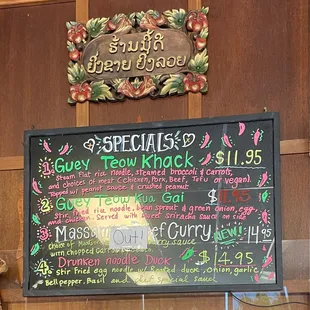 ร้านนี้ดี
ยิ่งขาย ยิ่งรวย
SPECIALS
1. Guey Teow Khack $11.95
Steam Flat rice noodle, steamed broccoli & Carrots,
and choices of meat Cchicken, Pork, Beef, Tofu or vegan).
Topped w/ peanut sauce & crushed peanut
2. Guey Teow Kua Gai
Stir fried rice noodle, bean sprout & green onion, egg
and chicken. Served with sweet Sriracha sauce on side
3. Massaman Beef Curry NEW! 14.95
curry sauce
with chopped
OUT!
4. Drunken noodle Duck $14.95
Stir fried egg noodle w/ Roasted duck, onion, garlic
Bell pepper, Basil and chef special sauce